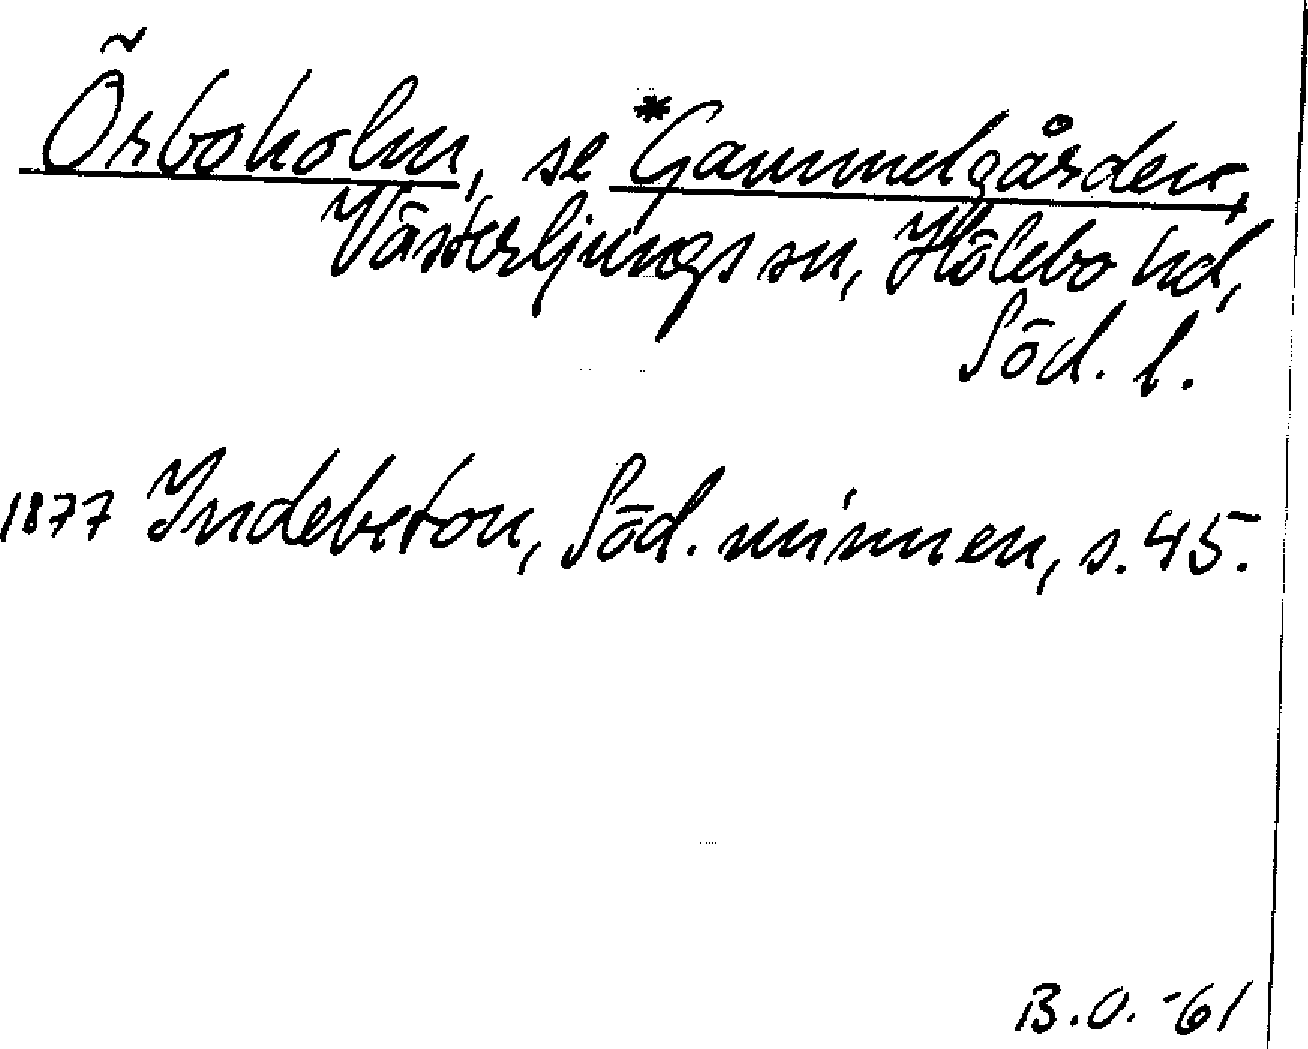 Örboholm, se *Gammelgården,
Västerljungs sn, Hölebo hd,
Söd. l.
1877 Indebetou, Söd. minnen, s. 45.
B.O. -61